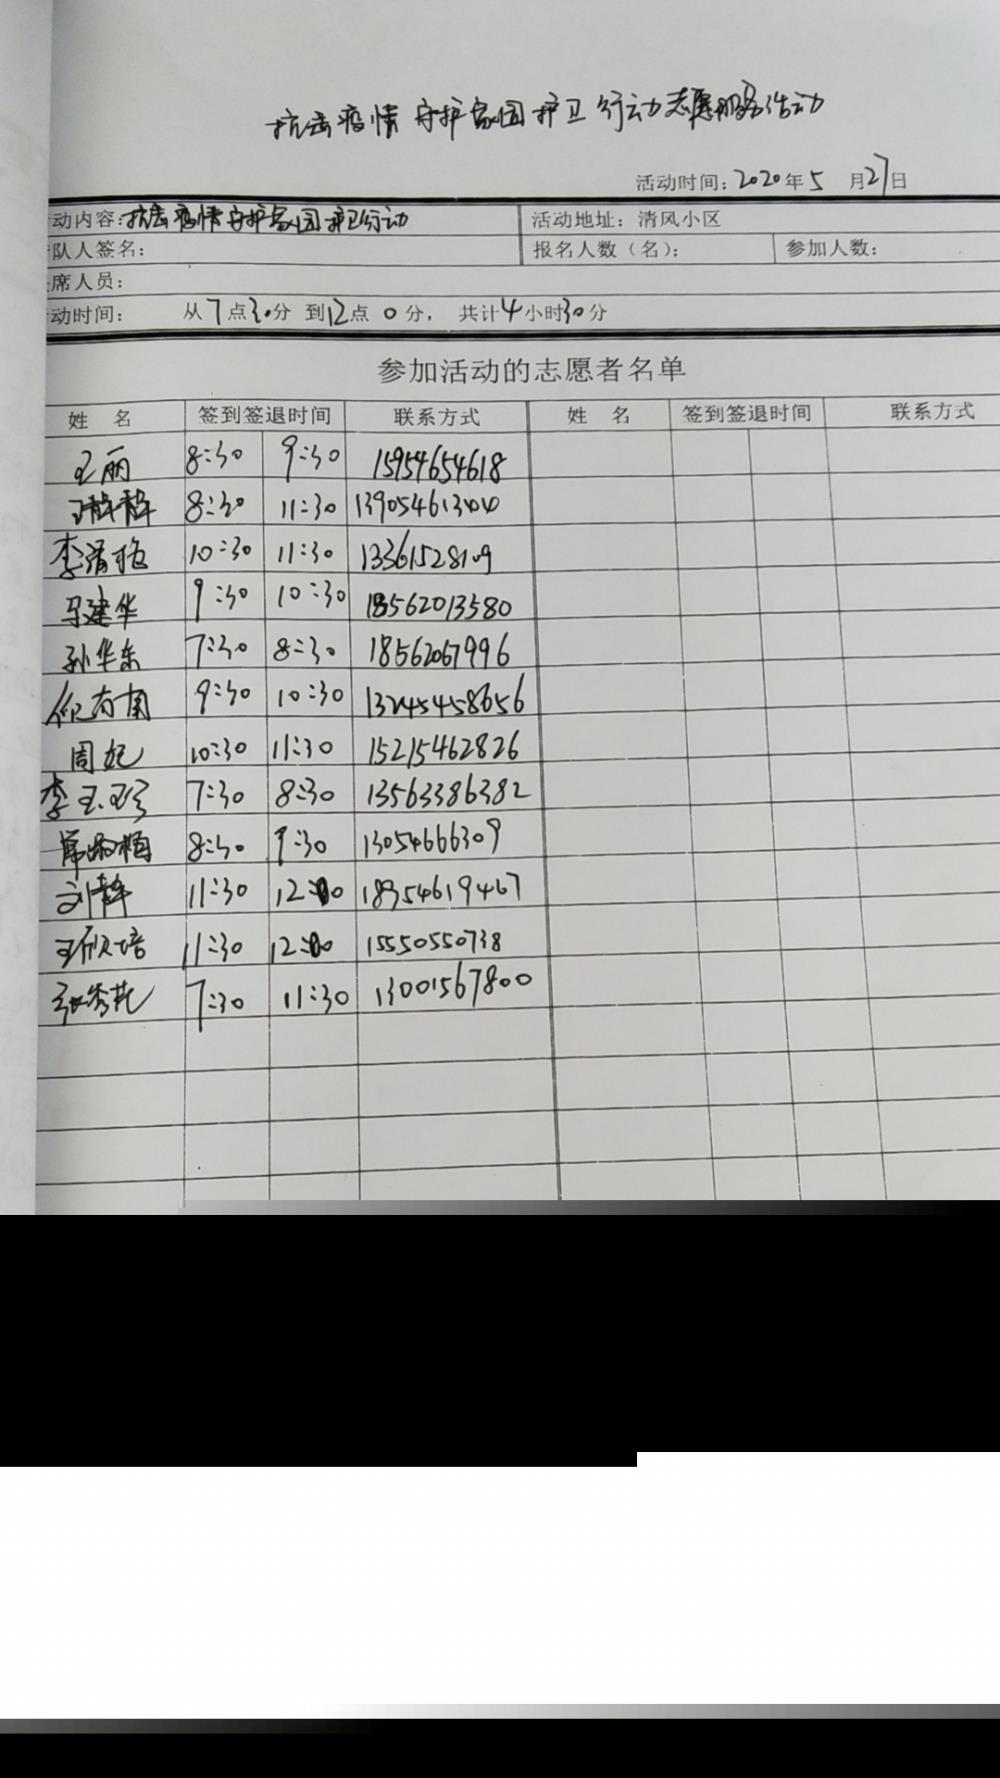 抗击疫情 守护家园 护卫行动志愿服务活动
活动时间:2020年5月27日
动内容:抗击疫情守护家园护卫行动 活动地址:清风小区
队人签名: 报名人数(名): 参加人数:
席人员:
动时间: 从7点30分 到12点 0分, 共计4小时30分
参加活动的志愿者名单
姓 名 签到签退时间 联系方式 姓 名 签到签退时间 联系方式
王丽 8:30 9:30 15954654618
王静静 8:30 11:30
李清艳 10:30 11:30 13361528109
马建华 9:30 10:30 18562013580
孙华东 7:30 8:30 18562067996
9:30 10:30 13245458656
周妃 10:30 11:30 15215462826
李玉珍 7:30 8:30 13563386382
8:30 9:30 13054666309
刘静 11:30 12:00 18954619467
王欣培 11:30 12:00 15550550738
张秀花 7:30 11:30 13001567800